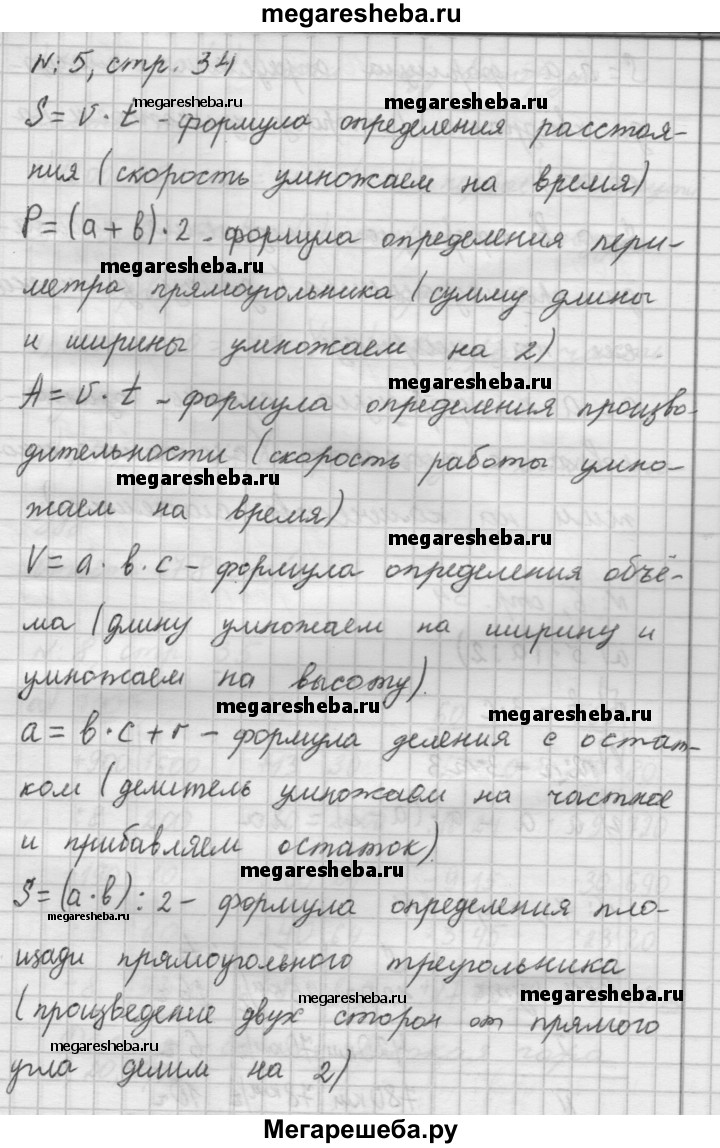 megaresheba.ru
N: 5, стр. 34
megaresheba.ru megaresheba.ru
S = v · t - формула определения расстоя-
ния (скорость умножаем на время)
P = (a + в) · 2 - формула определения пери-
megaresheba.ru
метра прямоугольника (сумму длины
и ширины умножаем на 2)
megaresheba.ru
A = v · t - формула определения произво-
дительности (скорость работы умно-
megaresheba.ru
жаем на время)
megaresheba.ru
V = a · в · c - формула определения объё-
ма (длину умножаем на ширину и
умножаем на высоту).
megaresheba.ru megaresheba.ru
a = в · c + r - формула деления с остат-
ком (делитель умножаем на частное
и прибавляем остаток).
megaresheba.ru
S = (a · в) : 2 - формула определения пло-
megaresheba.ru
щади прямоугольного треугольника
megaresheba.ru megaresheba.ru
(произведение двух сторон от прямого
megaresheba.ru
угла делим на 2)
Мегарешеба.ру